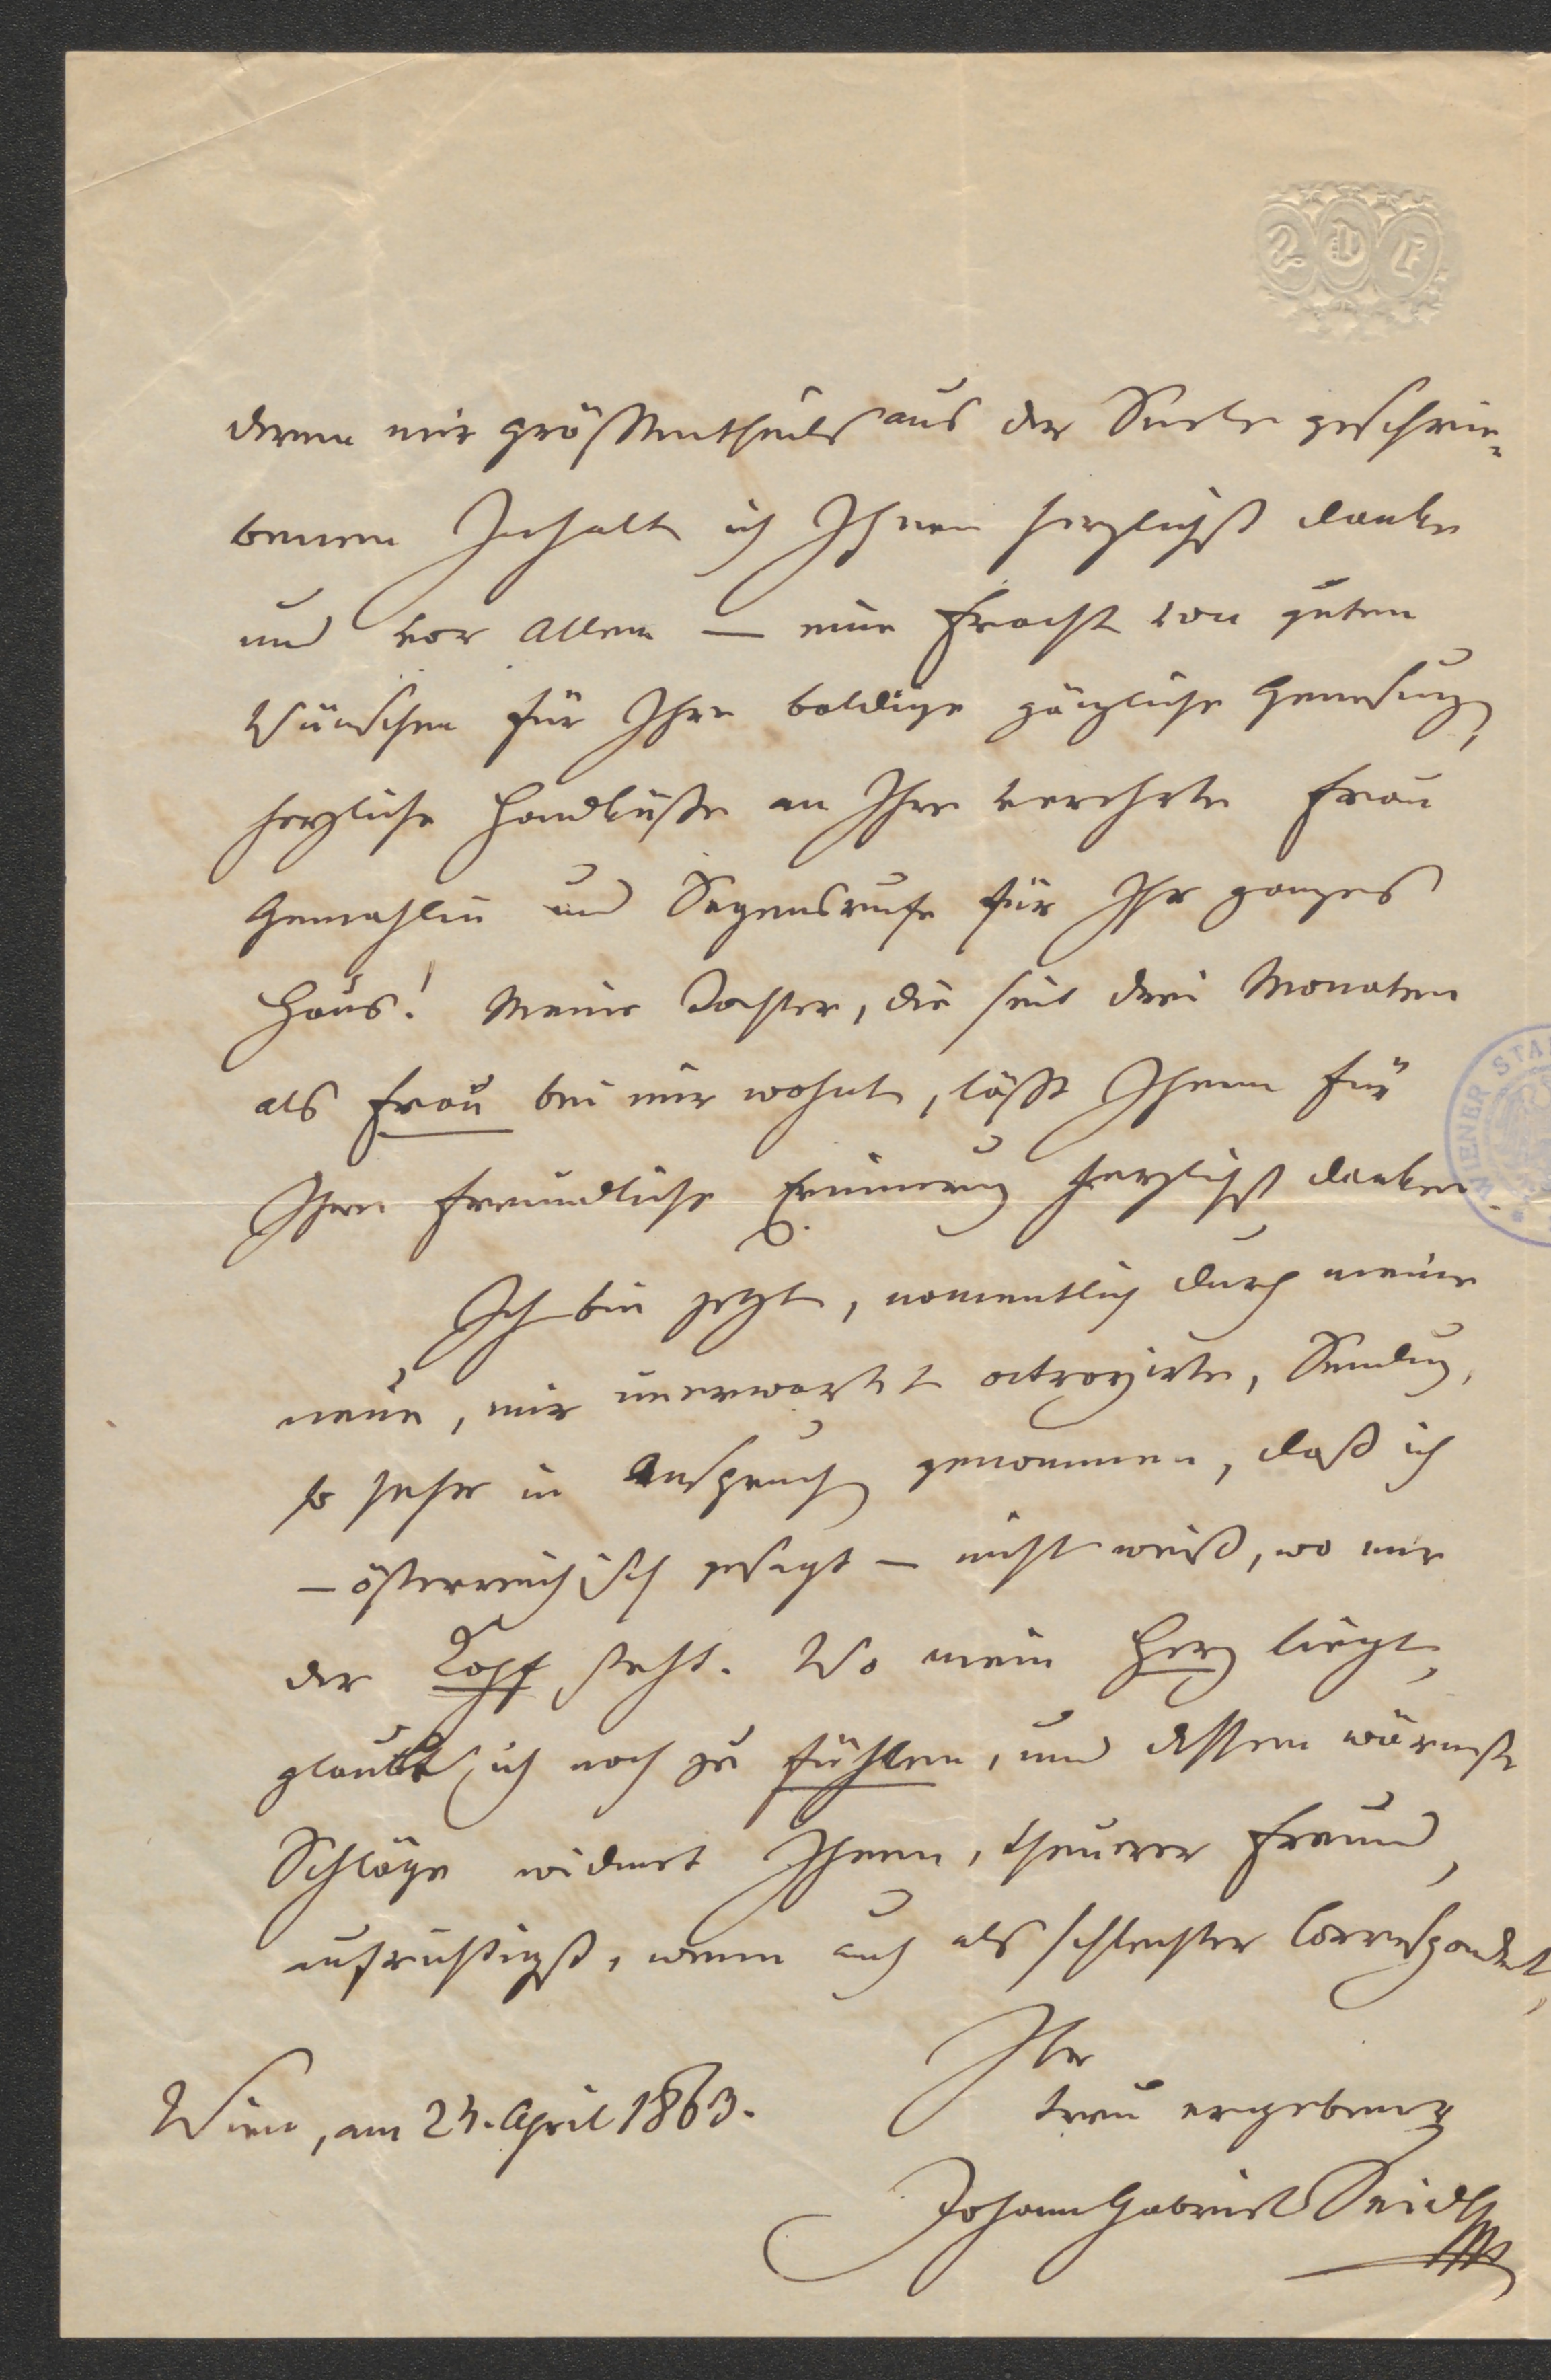 deren mir größtentheils aus der Seele geschrie-
benen Inhalt ich Ihnen herzlichst danke
und vor Allem — eine Fracht von guten
Wünschen für Ihre baldige gänzliche Genesung,
herzliche Handküße an Ihre verehrte Frau
Gemahlin und Segensrufe für Ihr ganzes
Haus! Meine Tochter, die seit drei Monaten
als Frau bei mir wohnt, läßt Ihnen für
Ihre freundliche Erinnerung herzlichst danken.
Ich bin jetzt, namentlich durch meine
neue, mir unerwartet octroyirte, Sendung,
so sehr in Anspruch genommen, daß ich
– österreichisch gesagt – nicht weiß, wo mir
der Kopf steht. Wo mein Herz liegt,
glaubt ich noch zu fühlen, und dessen wärmste
Schläge widmet Ihnen, theurer Freund,
aufrichtigst, wenn auch als schlechter Correspondent,
Ihr
treu ergebener
Wien, am 24. April 1863.
Johann Gabriel Seidl
WIENER STA